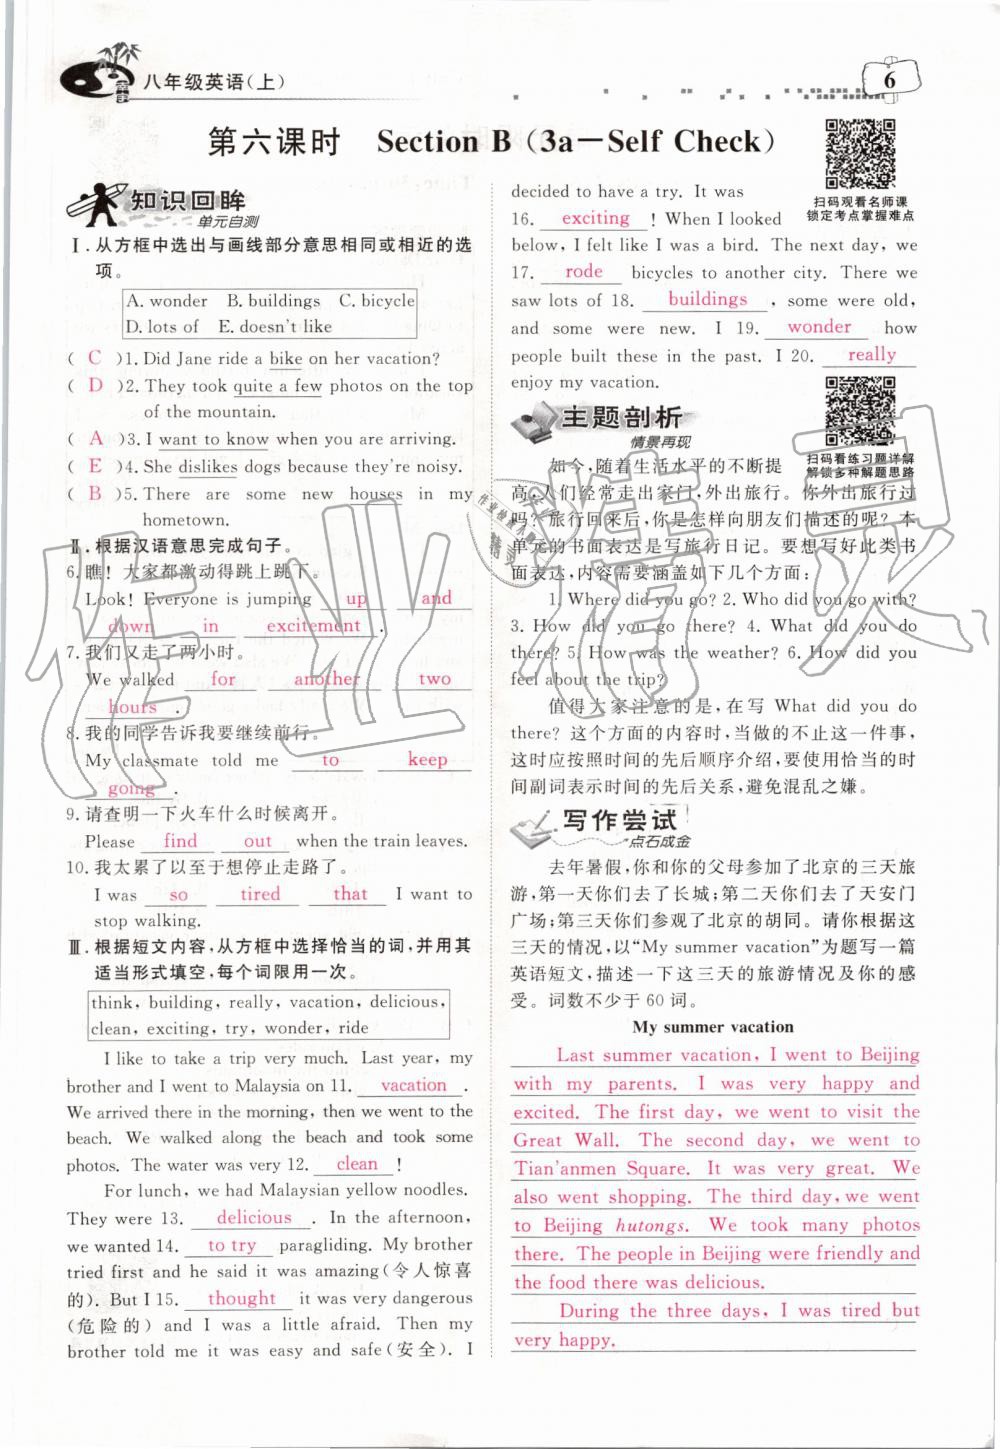 八年级英语(上)
6
第六课时 Section B (3a—Self Check)
知识回眸
单元自测
Ⅰ.从方框中选出与画线部分意思相同或相近的选
项。
A. wonder B. buildings C. bicycle
D. lots of E. doesn't like
( C )1. Did Jane ride a bike on her vacation?
( D )2. They took quite a few photos on the top
of the mountain.
( A )3. I want to know when you are arriving.
( E )4. She dislikes dogs because they're noisy.
( B )5. There are some new houses in my
hometown.
Ⅱ.根据汉语意思完成句子。
6.瞧!大家都激动得跳上跳下。
Look! Everyone is jumping up and
down in excitement .
7.我们又走了两小时。
We walked for another two
hours .
8.我的同学告诉我要继续前行。
My classmate told me to keep
going .
9.请查明一下火车什么时候离开。
Please find out when the train leaves.
10.我太累了以至于想停止走路了。
I was so tired that I want to
stop walking.
Ⅲ.根据短文内容,从方框中选择恰当的词,并用其
适当形式填空,每个词限用一次。
think, building, really, vacation, delicious,
clean, exciting, try, wonder, ride
I like to take a trip very much. Last year, my
brother and I went to Malaysia on 11. vacation .
We arrived there in the morning, then we went to the
beach. We walked along the beach and took some
photos. The water was very 12. clean !
For lunch, we had Malaysian yellow noodles.
They were 13. delicious . In the afternoon,
we wanted 14. to try paragliding. My brother
tried first and he said it was amazing(令人惊喜
的). But I 15. thought it was very dangerous
(危险的) and I was a little afraid. Then my
brother told me it was easy and safe(安全). I
decided to have a try. It was
16. exciting ! When I looked
below, I felt like I was a bird. The next day, we
17. rode bicycles to another city. There we
saw lots of 18. buildings , some were old,
and some were new. I 19. wonder how
people built these in the past. I 20. really
enjoy my vacation.
扫码观看名师课
锁定考点掌握难点
主题剖析
情景再现
扫码看练习题详解
解锁多种解题思路
如今,随着生活水平的不断提
高,人们经常走出家门,外出旅行。你外出旅行过
吗?旅行回来后,你是怎样向朋友们描述的呢?本
单元的书面表达是写旅行日记。要想写好此类书
面表达,内容需要涵盖如下几个方面:
1. Where did you go? 2. Who did you go with?
3. How did you go there? 4. What did you do
there? 5. How was the weather? 6. How did you
feel about the trip?
值得大家注意的是,在写 What did you do
there? 这个方面的内容时,当做的不止这一件事,
这时应按照时间的先后顺序介绍,要使用恰当的时
间副词表示时间的先后关系,避免混乱之嫌。
写作尝试
点石成金
去年暑假,你和你的父母参加了北京的三天旅
游,第一天你们去了长城;第二天你们去了天安门
广场;第三天你们参观了北京的胡同。请你根据这
三天的情况,以“My summer vacation”为题写一篇
英语短文,描述一下这三天的旅游情况及你的感
受。词数不少于 60 词。
My summer vacation
Last summer vacation, I went to Beijing
with my parents. I was very happy and
excited. The first day, we went to visit the
Great Wall. The second day, we went to
Tian'anmen Square. It was very great. We
also went shopping. The third day, we went
to Beijing hutongs. We took many photos
there. The people in Beijing were friendly and
the food there was delicious.
During the three days, I was tired but
very happy.
作业精灵